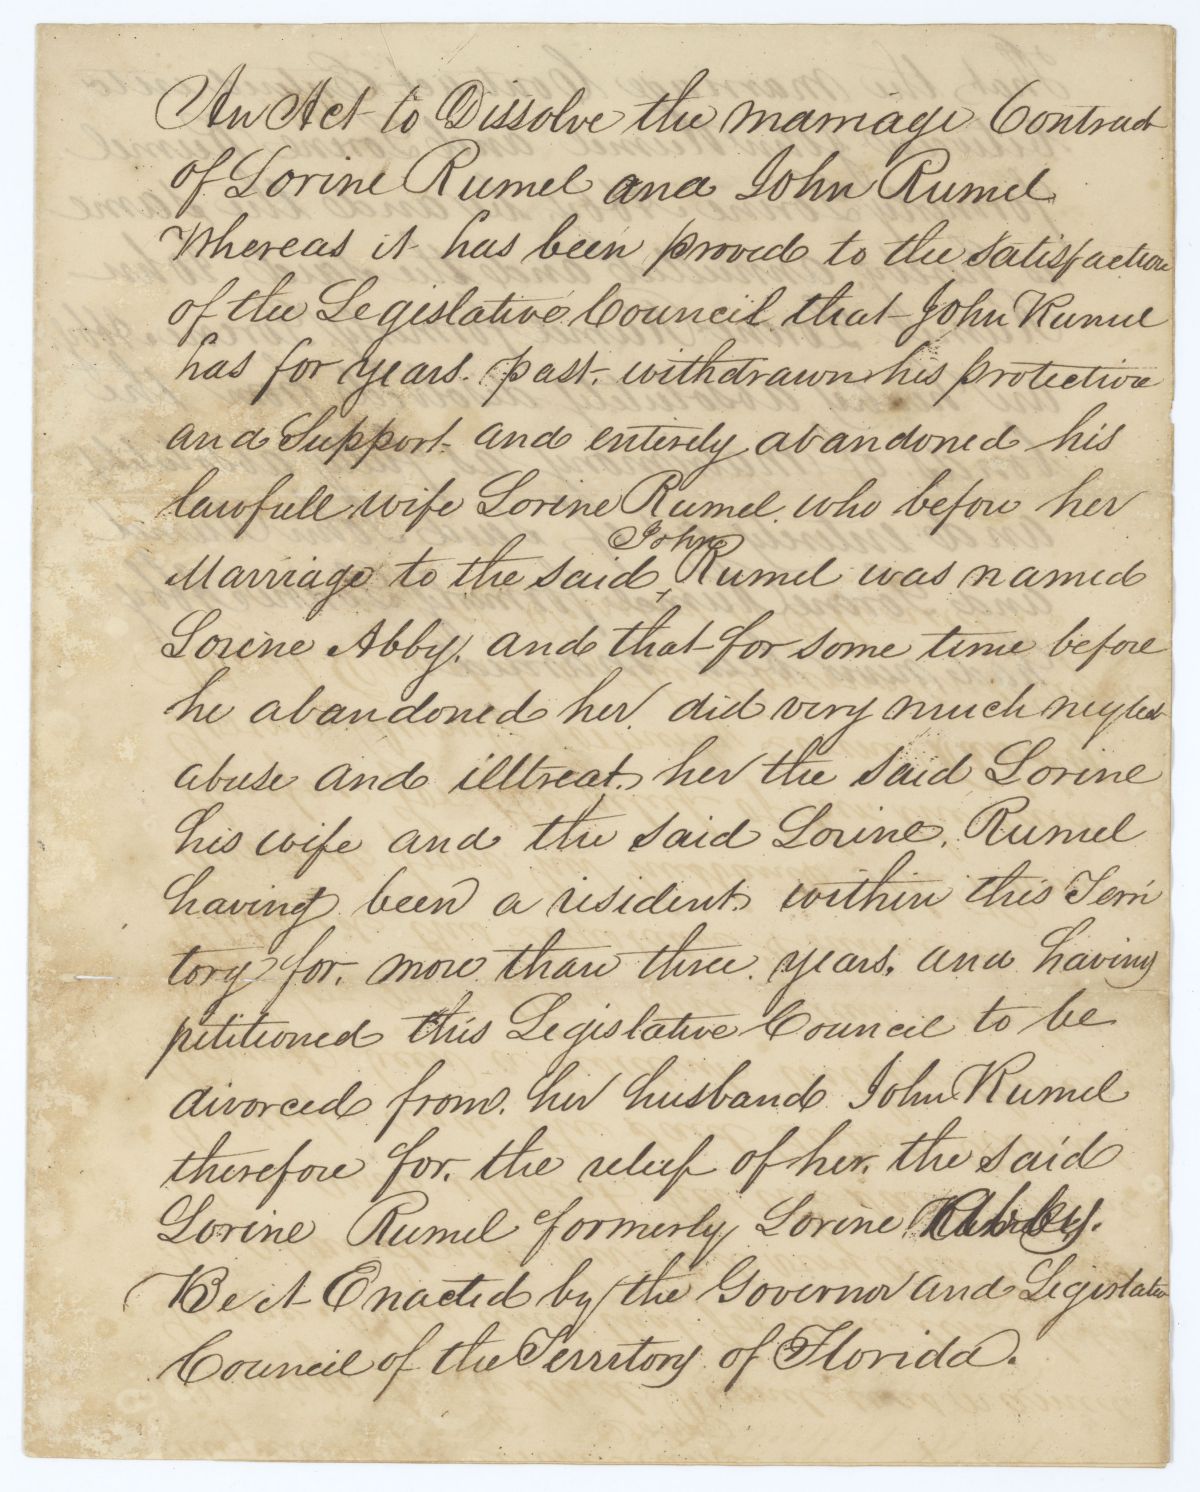 An Act to Dissolve the marriage Contract
of Lorine Rumel and John Rumel
Whereas it has been proved to the satisfaction
of the Legislative Council that John Rumel
has for years. past. withdrawn his protection
and Support and entirely abandoned his
lawfull wife Lorine Rumel. who before her
John
Marriage to the said ‸ Rumel was named
Lorine Abby. and that for some time before
he abandoned her did very much neglect
abuse and illtreat. her the said Lorine
his wife and the said Lorine. Rumel
having been a resident within this Terri
tory for. more than three. years. and having
petitioned this Legislative Council to be
divorced from. her husband John Rumel
therefore for. the relief of her. the said
Lorine Rumel formerly Lorine Abby.
Be it Enacted by the Governor and Legislative
Council of the Territory of Florida.